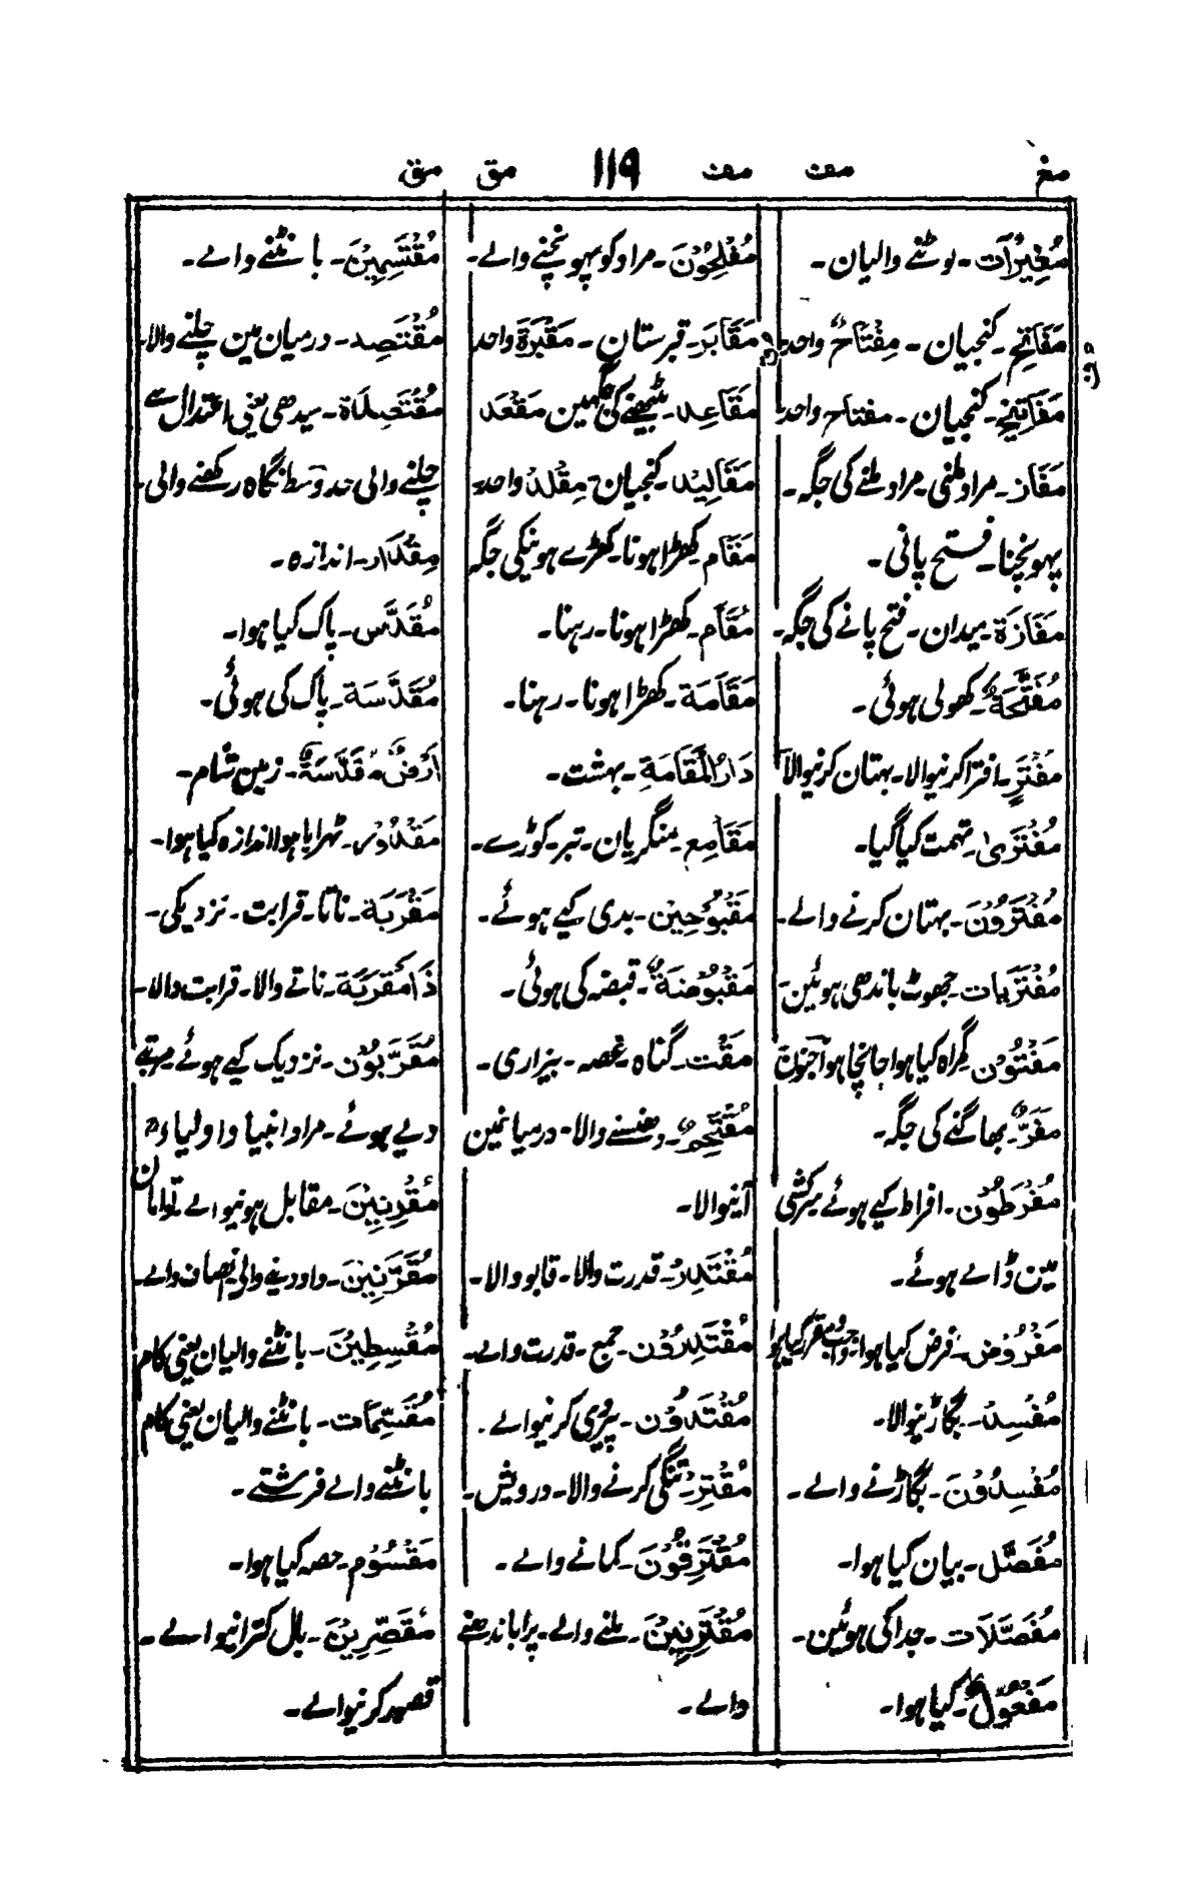 مغ مف ۱۱۹ مف مق مق
مُغِیْرَات۔ لوٹنے والیان۔
مَفَاتِح۔ کنجیان۔ مِفْتَاحٌ واحد
مَفَاتِیْح۔ کنجیان۔ مفتاح واحد
مَفَاز۔ مراد ملنی۔ مراد ملنے کی جگہ۔
پہونچنا۔ فتح پانی۔
مَفَازَة۔ میدان۔ فتح پانے کی جگہ۔
مُفَتَّحَةٌ۔ کھولی ہوئی۔
مُفْتَرٍ۔ افترا کرنیوالا۔ بہتان کرنیوالا
مُفْتَرَیٰ۔ تہمت کیا گیا۔
مُفْتَرُوْنَ۔ بہتان کرنے والے۔
مُفْتَرَیَات۔ جھوٹ باندھی ہوئین۔
مَفْتُوْن۔ گمراہ کیا ہوا جانچا ہوا
مَفَرٌّ۔ بھاگنے کی جگہ۔
مُفْرَطُوْن۔ افراط کیے ہوئے سرکشی
مین ڈالے ہوئے۔
مَفْرُوْض۔ فرض کیا ہوا۔ واجب مقرر کیا ہوا
مُفْسِد۔ بگاڑنیوالا۔
مُفْسِدُوْنَ۔ بگاڑنے والے۔
مُفَصَّل۔ بیان کیا ہوا۔
مُفَصَّلَات۔ جدا کی ہوئین۔
مَفْعُوْل۔ کیا ہوا۔
مق
مُفْلِحُوْنَ۔ مراد کو پہونچنے والے۔
مَقَابَر۔ قبرستان۔ مَقْبَرَة واحد
مَقَاعِد۔ بیٹھنے کی جگہین مَقْعَد
مَقَالِیْد۔ کنجیان۔ مِقْلَد واحد۔
مَقَام کھڑا ہونا۔ کھڑے ہونیکی جگہ
مُقَام۔ کھڑا ہونا۔ رہنا۔
مَقَامَة۔ کھڑا ہونا۔ رہنا۔
دَارُ الْمَقَامَةِ۔ بہشت۔
مَقَامِع۔ منگریان۔ تبر۔ کوڑے۔
مَقْبُوْحِیْن۔ بدی کیے ہوئے۔
مَقْبُوْضَةٌ۔ قبضہ کی ہوئی۔
مَقْت۔ گناہ۔ غصہ۔ بیزاری۔
مُقْتَحِم۔ دھنسنے والا۔ درمیانمین
آنیوالا۔
مُقْتَدِر۔ قدرت والا۔ قابو والا۔
مُقْتَدِرُوْن۔ جمع۔ قدرت والے۔
مُقْتَدُوْن۔ پیروی کرنیوالے۔
مُقْتِر۔ تنگی کرنے والا۔ درویش۔
مُقْتَرِفُوْنَ۔ کمانے والے۔
مُقْتَرِنِیْنَ۔ ملنے والے۔ پرا باندھنے
والے۔
مُقْتَسِمِیْنَ۔ بانٹنے والے۔
مُقْتَصِد۔ درمیان مین چلنے والا۔
مُقْتَصِدَة۔ سیدھی یعنی اعتدال سے
چلنے والی حد وسط نگاہ رکھنے والی۔
مِقْدَار۔ اندازہ۔
مُقَدَّس۔ پاک کیا ہوا۔
مُقَدَّسَة۔ پاک کی ہوئی۔
اَرْضٌ مُقَدَّسَةٌ۔ زمین شام۔
مَقْدُوْر۔ ٹھرایا ہوا اندازہ کیا ہوا۔
مَقْرَبَة۔ ناتا۔ قرابت۔ نزدیکی۔
ذَا مَقْرَبَة۔ ناتے والا۔ قرابت والا۔
مُقَرَّبُوْن۔ نزدیک کیے ہوئے مرتبے
دیے ہوئے۔ مراد انبیا و اولیاء
مُقْرِنِیْنَ۔ مقابل ہونیوالے۔ توامان
مُقَرَّنِیْنَ۔ داد دینے والے انصاف والے۔
مُقْسِطِیْنَ۔ بانٹنے والیان یعنی کام
مُقَسِّمَات۔ بانٹنے والیان یعنی کام
بانٹنے والے فرشتے۔
مَقْسُوْم۔ حصہ کیا ہوا۔
مُقَصِّرِیْنَ۔ بال کترانیوالے۔
قصر کرنیوالے۔